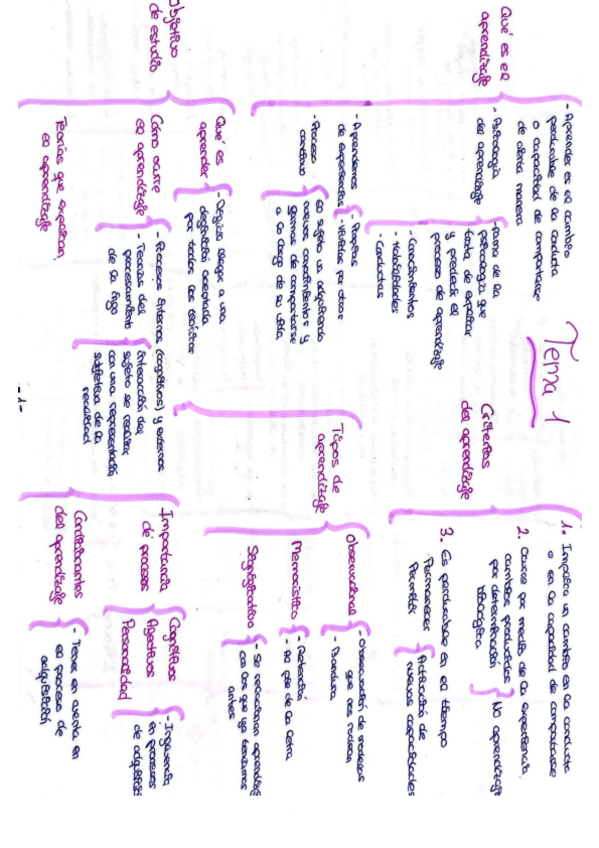 Tema 1
Qué es el
aprendizaje
- Aprender es el cambio
perdurable de la conducta
o capacidad de comportarse
de cierta manera
- Psicología
del aprendizaje
- Rama de la
psicología que
trata de explicar
y predecir el
proceso de aprendizaje
- Conocimientos
- Habilidades
- Conductas
- Aprendemos
de experiencias
- Propias
- Vividas por otros
- Proceso
continuo
El sujeto va adquiriendo
nuevos conocimientos y
formas de comportarse
a lo largo de su vida
Objetivo
de estudio
Qué es
aprender
- Difícil llegar a una
definición aceptada
por todos los teóricos
Cómo ocurre
el aprendizaje
- Procesos internos (cognitivos) y externos
- Teorías del
procesamiento
de la info
interacción del
sujeto se realiza
con una representación
subjetiva de la
realidad
Teorías que explican
el aprendizaje
Criterios
del aprendizaje
1. Implica un cambio en la conducta
o en la capacidad de comportarse
2. Ocurre por medio de la experiencia
cambios producidos
por determinación
biológica
No aprendizaje
3. Es perdurable en el tiempo
Permanecer
Permitir
Activación de
nuevas capacidades
Tipos de
aprendizaje
Observacional
- Observación de modelos
que nos rodean
- Bandura
Memorístico
- Retención
- Al pie de la letra
Significativo
- Se relacionan aprendizajes
con los que ya teníamos
antes
Importancia
de procesos
Cognitivos
Afectivos
Personalidad
- Influencia
en procesos
de adquisición
Condicionantes
del aprendizaje
- Tener en cuenta en
el proceso de
adquisición
- 1 -